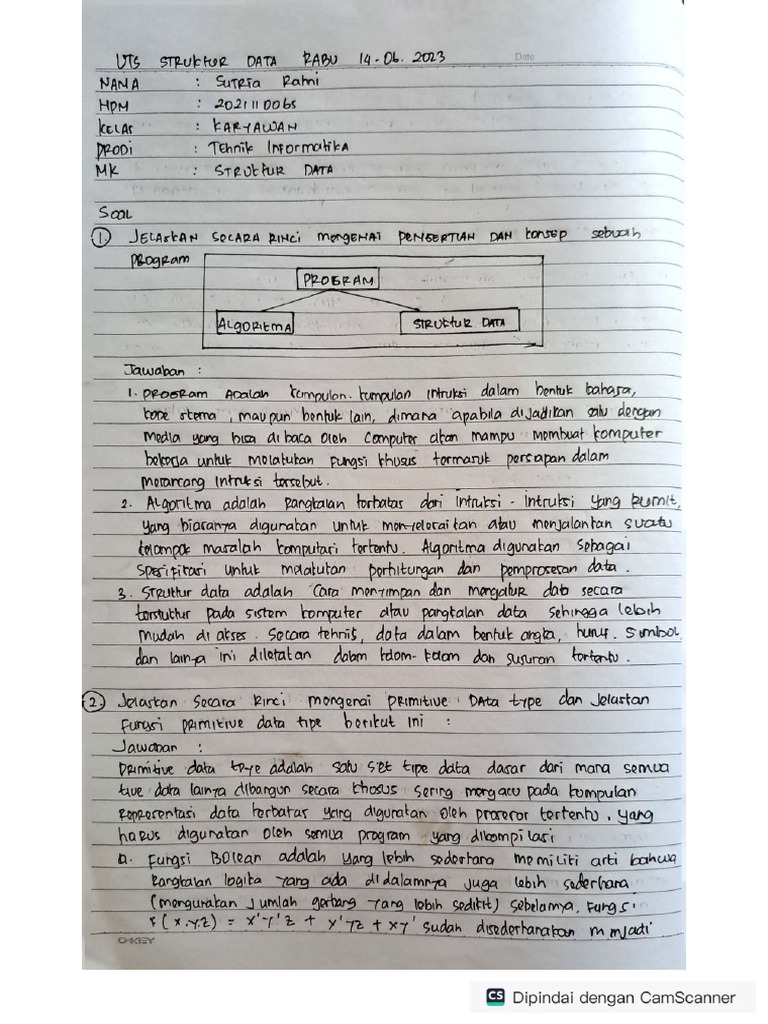 UTS STRUKTUR DATA RABU 14-06-2023
Date
NAMA : Sutria Rahni
NPM : 2021110065
KELAS : KARYAWAN
PRODI : Tehnik Informatika
MK : STRUKTUR DATA
Soal
1. JELASKAN SECARA RINCI mengenai PENGERTIAN DAN konsep sebuah
Program
PROGRAM
ALGORITMA
STRUKTUR DATA
Jawaban :
1. PROGRAM Adalah kumpulan-kumpulan intruksi dalam bentuk bahasa,
kode skema, maupun bentuk lain, dimana apabila dijadikan satu dengan
media yang bisa di baca oleh computer akan mampu membuat komputer
bekerja untuk melakukan fungsi khusus termasuk persapan dalam
merancang intruksi tersebut.
2. Algoritma adalah Rangkaian terbatas dari intruksi-intruksi yang rumit,
yang biasanya digunakan untuk menyelesaikan atau menjalankan suatu
kelompok masalah komputasi tertentu. Algoritma digunakan sebagai
spesifikasi untuk melakukan perhitungan dan pemprosesan data.
3. Struktur data adalah Cara menyimpan dan mengatur data secara
terstuktur pada sistem komputer atau pangkalan data sehingga lebih
mudah di akses. Secara tehnis, data dalam bentuk angka, huruf, simbol,
dan lainya ini diletakan dalam kolom-kolom dan susunan tertentu.
2. Jelaskan secara Rinci mengenai Primitive DATA type dan Jelaskan
Fungsi primitive data tipe berikut ini :
Jawaban :
Primitive data type adalah satu set tipe data dasar dari mana semua
tipe data lainya dibangun secara khosus sering mengacu pada kumpulan
Representasi data terbatas yang digunakan oleh prosesor tertentu, yang
harus digunakan oleh semua program yang dikompilasi
a. Fungsi BOlean adalah yang lebih sederhana memiliki arti bahwa
Rangkaian logika yang ada didalamnya juga lebih sederhana
(mengunakan jumlah gerbang yang lebih sedikit) sebelamya, Fungsi
F(x,y,z) = x'y'z + x'yz + xy' sudah disederhanakan mnjadi
OKEY
CS Dipindai dengan CamScanner